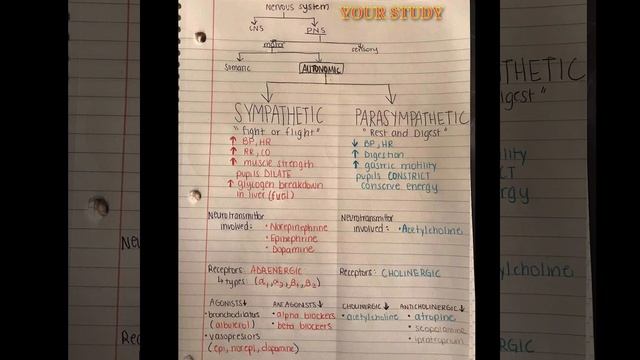 Nervous system
YOUR STUDY
CNS
PNS
motor
sensory
Somatic
AUTONOMIC
SYMPATHETIC
"fight or flight"
↑ BP, HR
↑ RR, CO
↑ muscle strength
pupils DILATE
↑ glycogen breakdown
in liver (fuel)
PARASYMPATHETIC
"Rest and Digest"
↓ BP, HR
↑ Digestion
↑ gastric motility
pupils CONSTRICT
conserve energy
Neurotransmittor
involved: • Norepinephrine
• Epinephrine
• Dopamine
Neurotransmittor
involved: • Acetylcholine
Receptors: ADRENERGIC
↳ types: (α₁, α₂, β₁, β₂)
Receptors: CHOLINERGIC
AGONISTS↓
• bronchodilators
(albuterol)
• vasopressors
(epi, norepi, dopamine)
ANTAGONISTS↓
• alpha blockers
• beta blockers
CHOLINERGIC↓
• acetylcholine
ANTICHOLINERGIC↓
• atropine
• scopolamine
• ipratropium